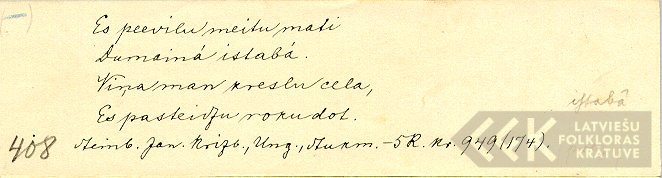 Es peevilu meitu mati
Dumainá istabá.
Viņa man kreslu cela,
Es pasteidzu roku dot.
istabâ
408 Aeinb. Jan. Krizb., Ung., Aukm. - 5R. Nr. 949 (174).
LATVIEŠU
FOLKLORAS
KRĀTUVE